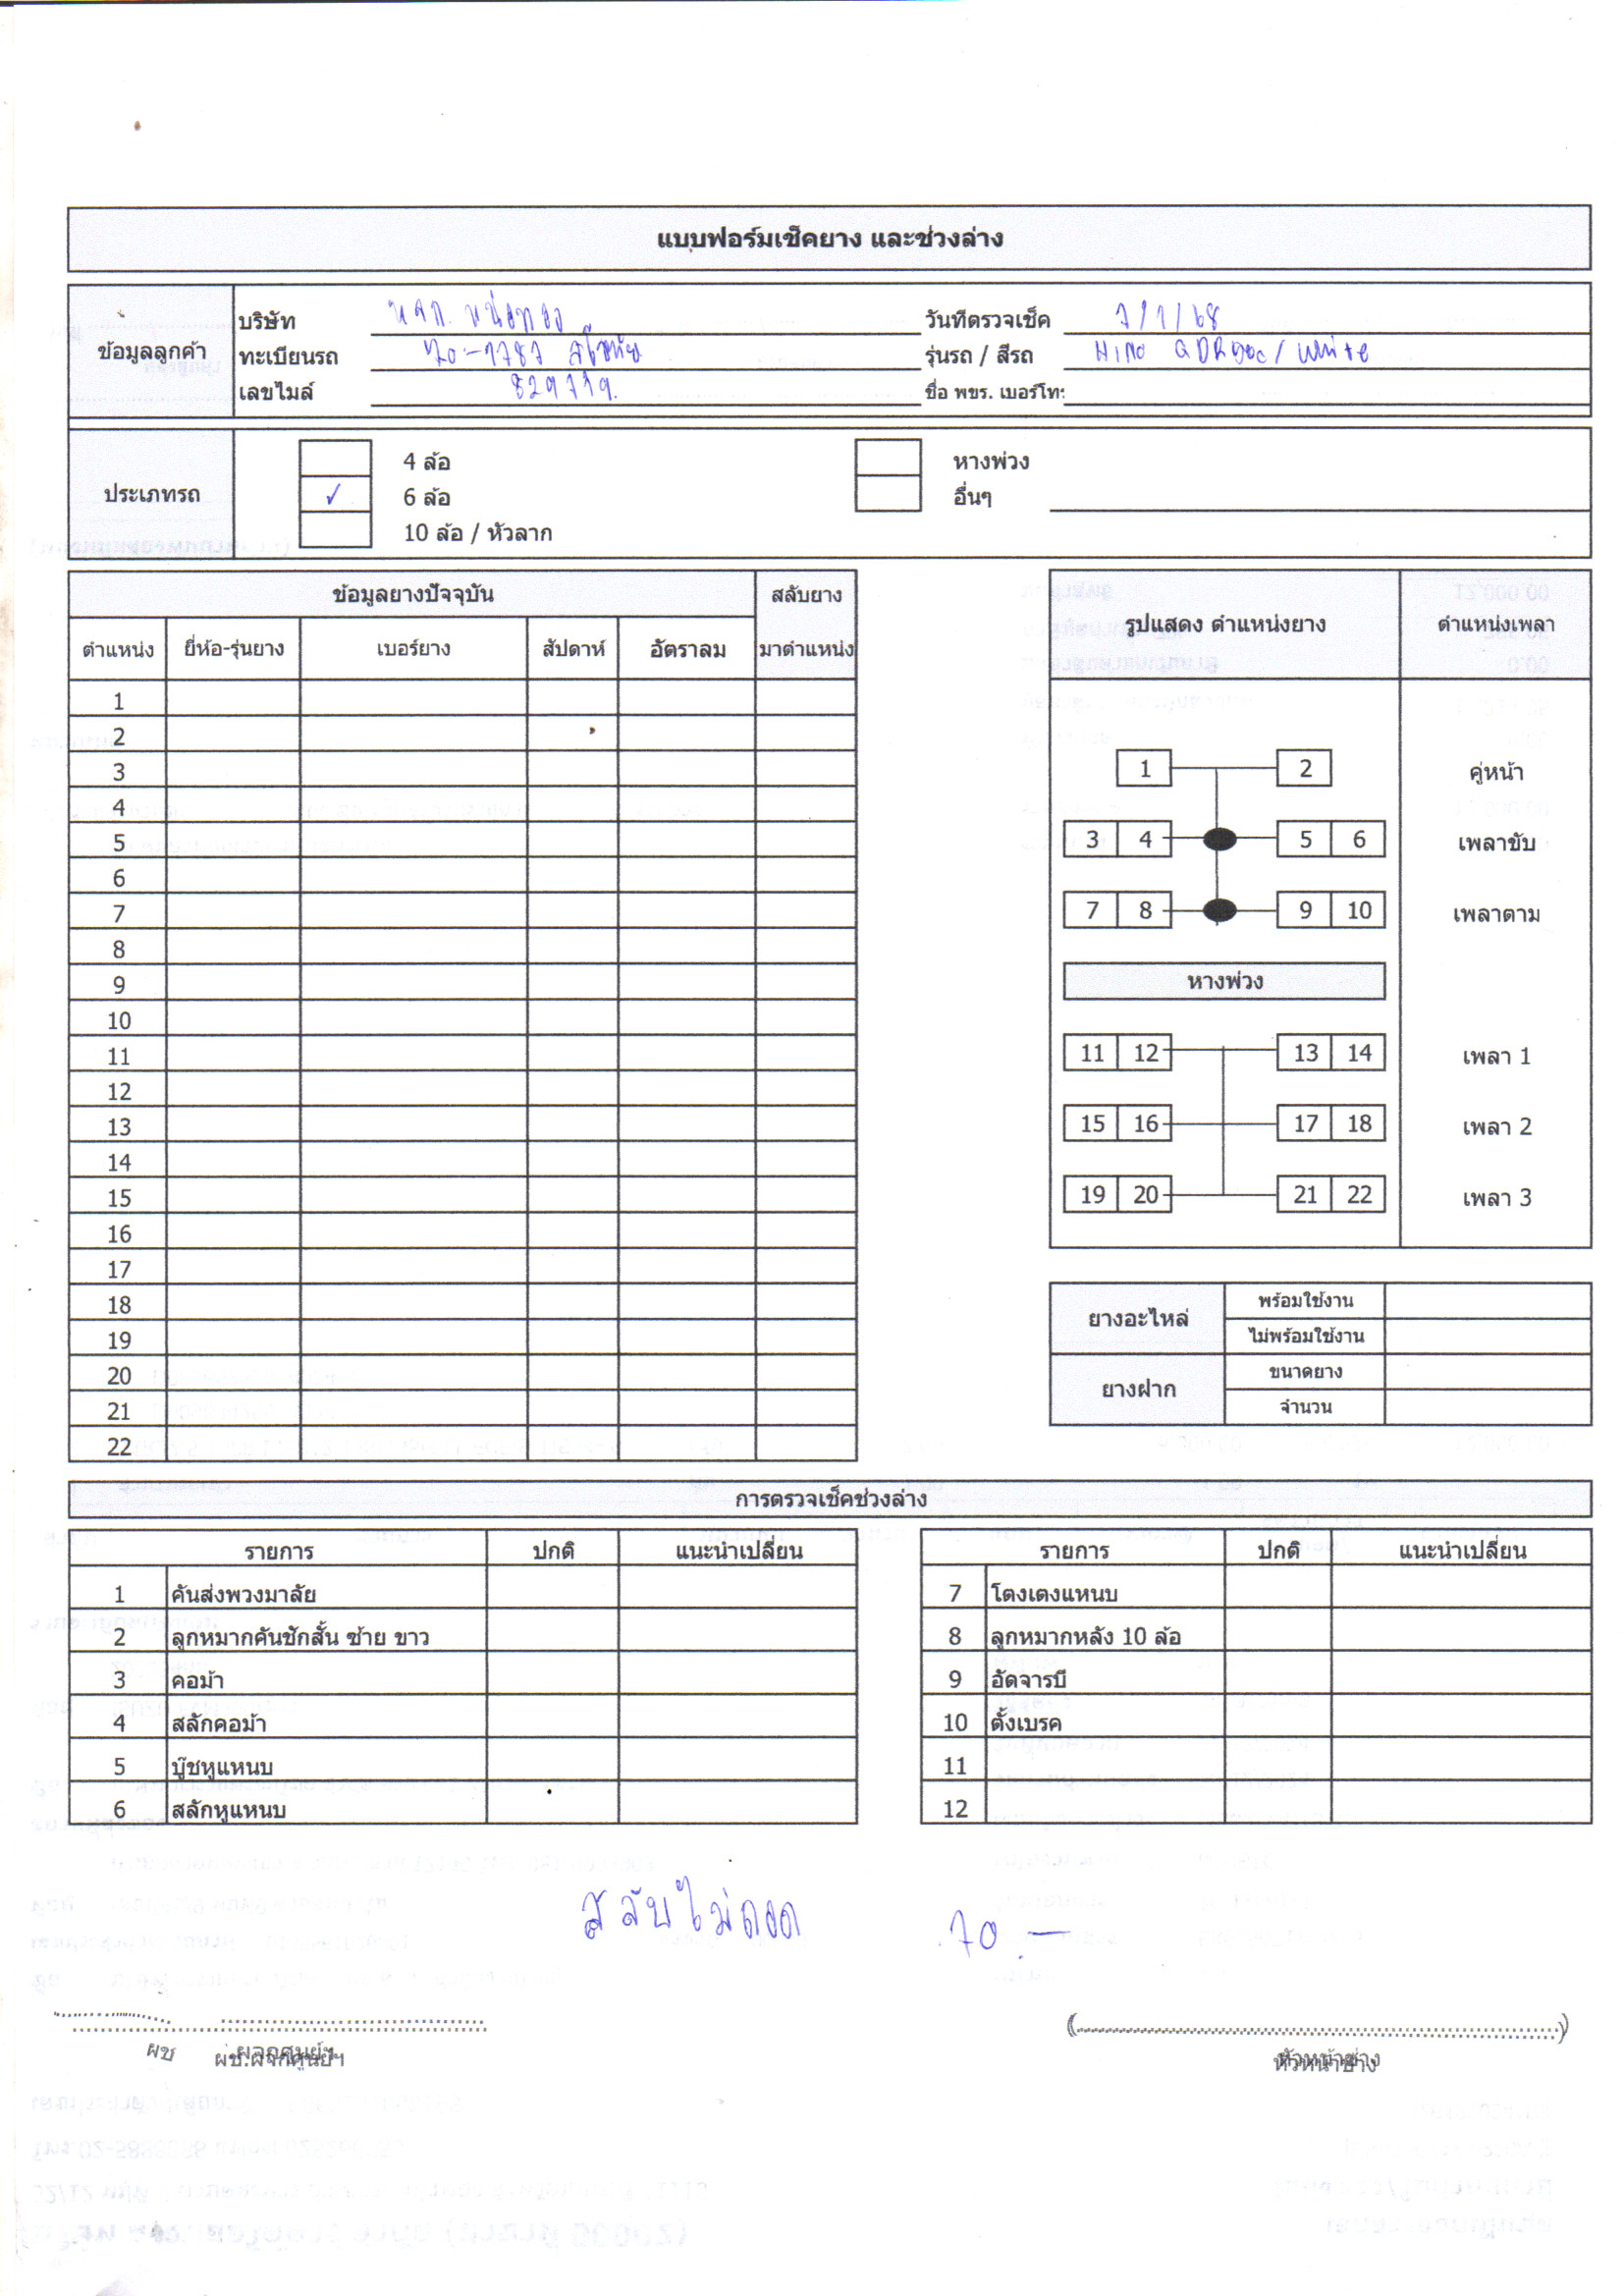 แบบฟอร์มเช็คยาง และช่วงล่าง
ข้อมูลลูกค้า
บริษัท หจก. หน่อทอง วันที่ตรวจเช็ค 7/1/68
ทะเบียนรถ 70-1787 สุโขทัย รุ่นรถ / สีรถ Hino / White
เลขไมล์ 829779. ชื่อ พขร. เบอร์โทร
ประเภทรถ
4 ล้อ หางพ่วง
✓ 6 ล้อ อื่นๆ
10 ล้อ / หัวลาก
ข้อมูลยางปัจจุบัน สลับยาง
ตำแหน่ง ยี่ห้อ-รุ่นยาง เบอร์ยาง สัปดาห์ อัตราลม มาตำแหน่ง
1
2
3
4
5
6
7
8
9
10
11
12
13
14
15
16
17
18
19
20
21
22
รูปแสดง ตำแหน่งยาง ตำแหน่งเพลา
1 2 คู่หน้า
3 4 5 6 เพลาขับ
7 8 9 10 เพลาตาม
หางพ่วง
11 12 13 14 เพลา 1
15 16 17 18 เพลา 2
19 20 21 22 เพลา 3
ยางอะไหล่ พร้อมใช้งาน
ไม่พร้อมใช้งาน
ยางฝาก ขนาดยาง
จำนวน
การตรวจเช็คช่วงล่าง
รายการ ปกติ แนะนำเปลี่ยน
1 คันส่งพวงมาลัย
2 ลูกหมากคันชักสั้น ซ้าย ขาว
3 คอม้า
4 สลักคอม้า
5 บู๊ชหูแหนบ
6 สลักหูแหนบ
รายการ ปกติ แนะนำเปลี่ยน
7 โตงเตงแหนบ
8 ลูกหมากหลัง 10 ล้อ
9 อัดจารบี
10 ตั้งเบรค
11
12
สลับไม่ถอด 70.-
ผช.ผจกศูนย์ฯ หัวหน้าช่าง